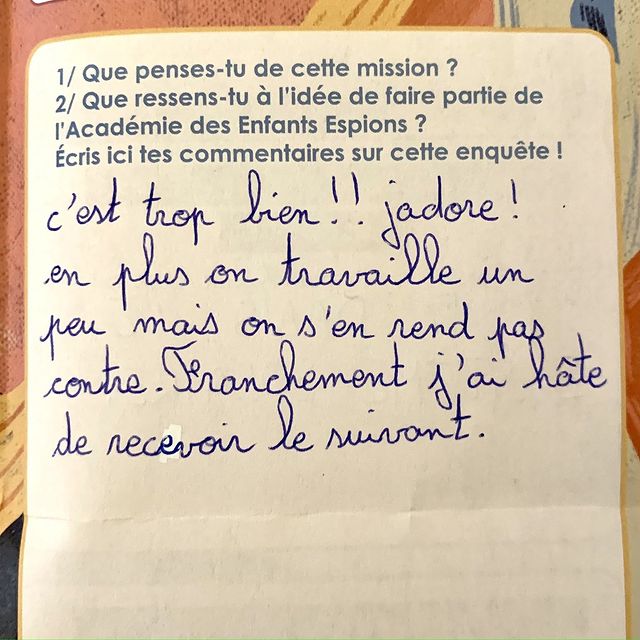 1/ Que penses-tu de cette mission ?
2/ Que ressens-tu à l'idée de faire partie de
l'Académie des Enfants Espions ?
Écris ici tes commentaires sur cette enquête !
c'est trop bien !! jadore !
en plus on travaille un
peu mais on s'en rend pas
contre. Franchement j'ai hâte
de recevoir le suivant.